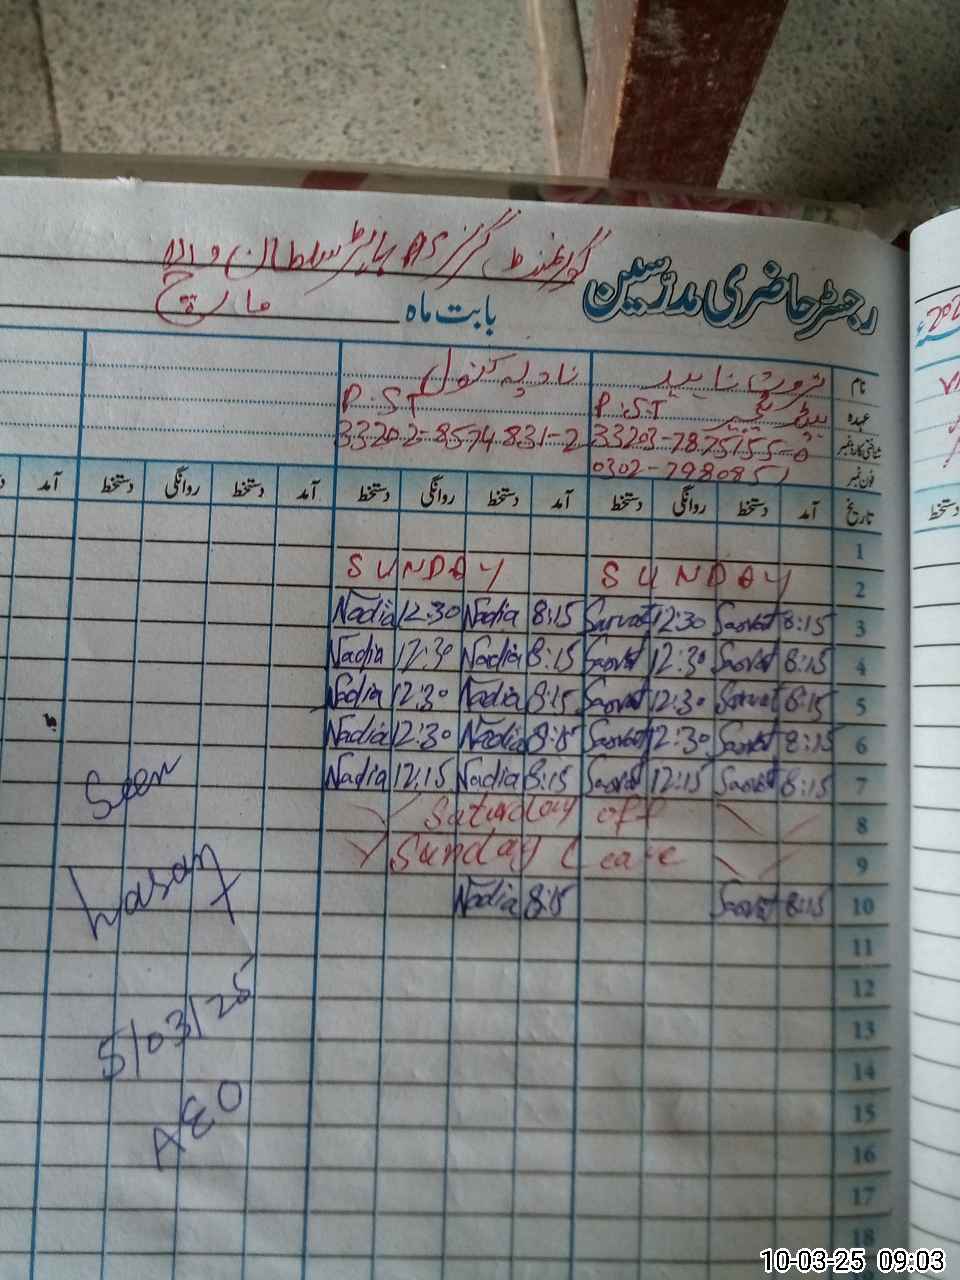 گورنمنٹ گرلز
رجسٹر حاضری مدرسین
بابت ماہ مارچ
نام
نادیہ کنول
عہدہ
P.S.T
P.S.T
شناختی کارڈ نمبر
33202-8574831-2
فون نمبر
0302-7980851
تاریخ آمد دستخط روانگی دستخط آمد دستخط روانگی دستخط آمد دستخط روانگی دستخط آمد
دستخط
1
SUNDAY SUNDAY 2
Nadia 12:30 Nadia 8:15 Sarvat 12:30 Sarvat 8:15 3
Nadia 12:30 Nadia 8:15 Sarvat 12:30 Sarvat 8:15 4
Nadia 12:30 Nadia 8:15 Sarvat 12:30 Sarvat 8:15 5
Nadia 12:30 Nadia 8:15 Sarvat 12:30 Sarvat 8:15 6
Nadia 12:15 Nadia 8:15 Sarvat 12:15 Sarvat 8:15 7
Saturday off 8
Sunday Leave 9
Nadia 8:15 Sarvat 8:15 10
11
12
13
14
15
16
17
18
Seen
5/03/25
AEO
10-03-25 09:03